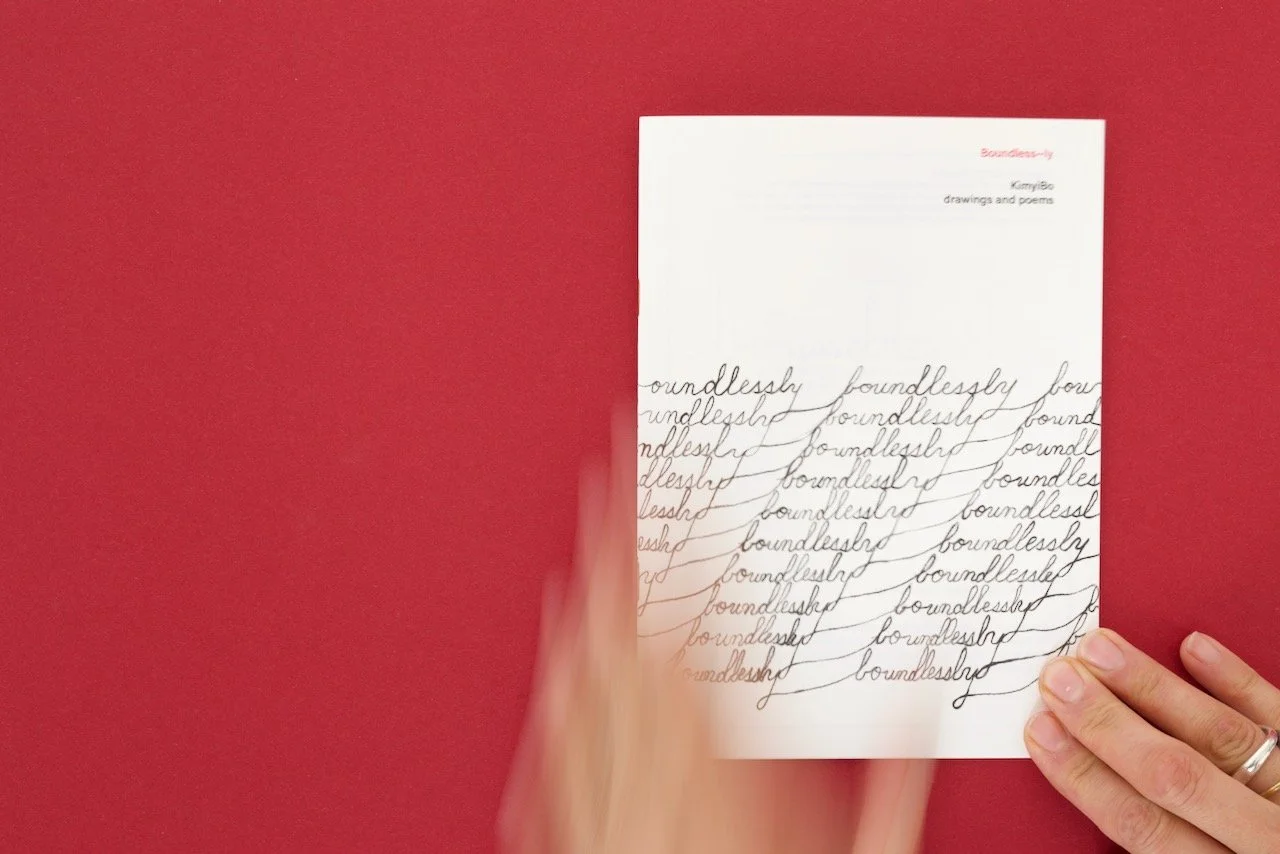 Boundless—ly
KimyiBo
drawings and poems
oundlessly boundlessly bou
undlessly boundlessly bound
ndlessly boundlessly boundl
dlessly boundlessly boundles
lessly boundlessly boundlessl
essly boundlessly boundlessly
ly boundlessly boundlessly
y boundlessly boundlessly b
boundlessly boundlessly b
oundlessly boundlessly